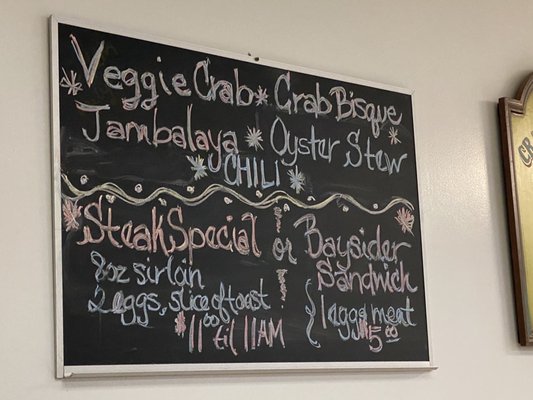 Veggie Crab * Crab Bisque *
Jambalaya * Oyster Stew
* CHILI *
* Steak Special or Baysider *
8oz sirloin Sandwich
2 eggs, slice of toast 1 egg & meat
$11.00 til 11AM $5.00